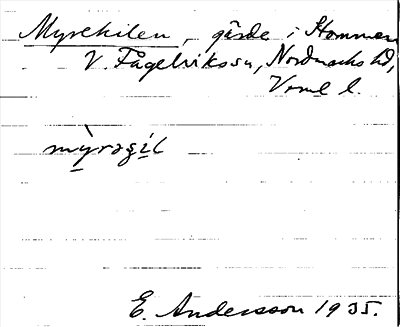 Myrekilen, gärde i Homman
V. Fågelvikssn, Nordmarks hd,
Vrml l.
mỳrəgil
E. Andersson 1935.